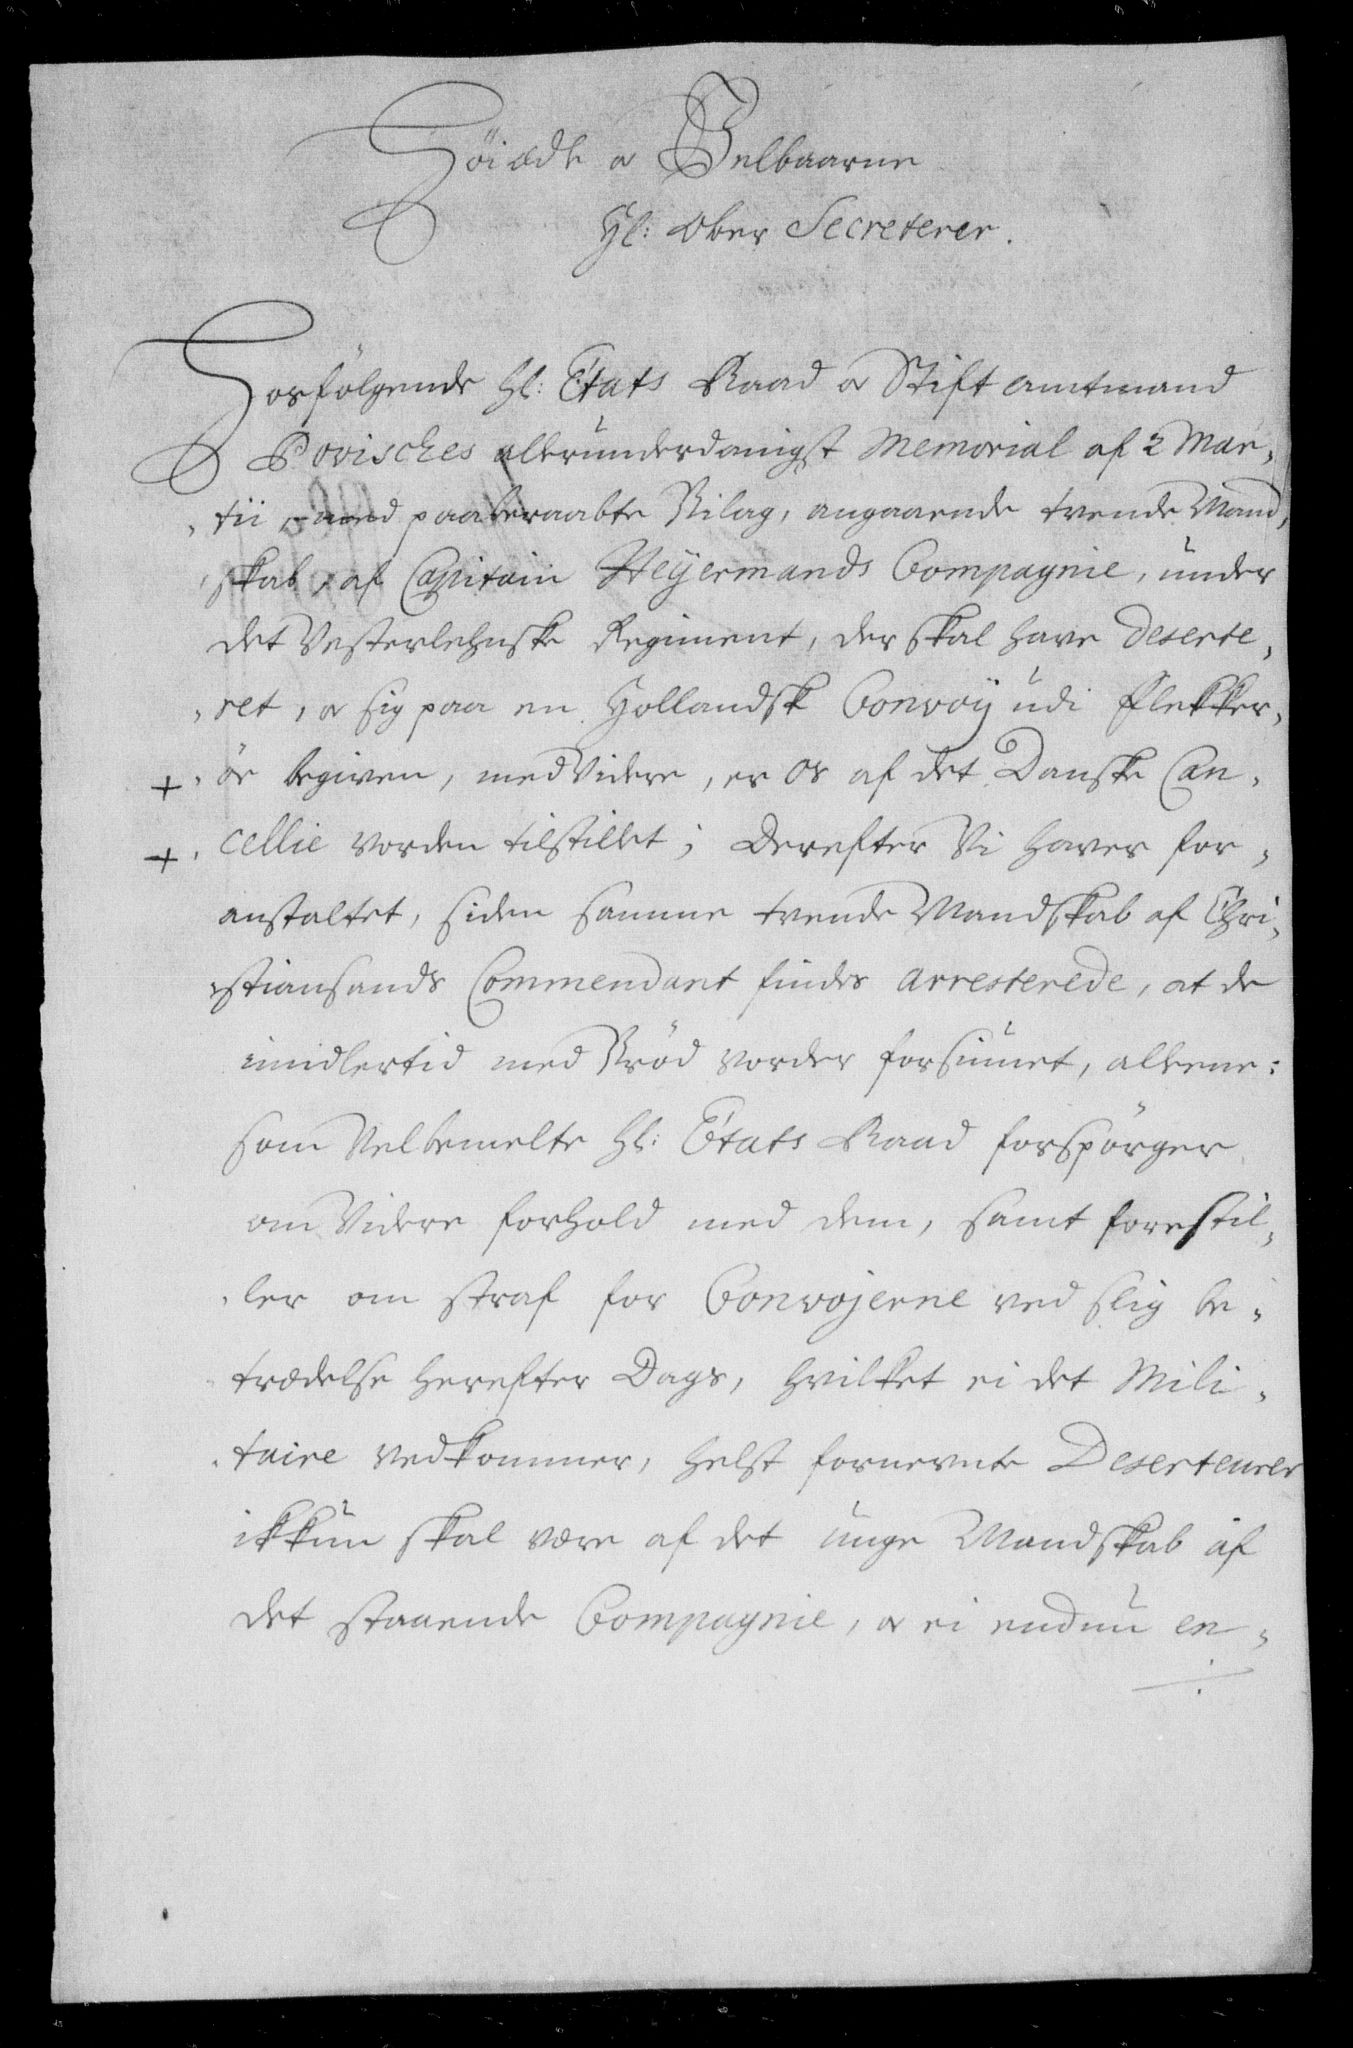 Höiædle & Velbaarne
Hl: Ober Secreterer.
Hosfølgende Hl: Etats Raad & Stift Amtmand
Povisches allerunderdanigst Memorial af 2 Mar-
tii, med paaberaabte Bilag, angaaende tvende Mand-
skab, af Capitain Heyermands Compagnie, under
det Vesterlehnske Regiment, der skal have Deserte-
ret, & sig paa en Hollandsk Convoÿ udi Flekker-
öe begiven, med Videre, er os af det Danske Can-
cellie vorden tilstillet; Derefter Vi haver for-
anstaltet, siden samme tvende Mandskab af Chri-
stiansands Commendant findes Arresterede, at de
imidlertid med Brød vorder forsiunet, allene:
som Velbemelte Hl: Etats Raad forspörger
om Videre forhold med dem, samt forestil-
ler om straf for Convojerne ved slig be-
trædelse herefter Dags, hvilket ei det Mili-
taire vedkommer, helst fornevnte Deserteurer
ikkun skal være af det unge Mandskab af
det staaende Compagnie, & ei endnu en-